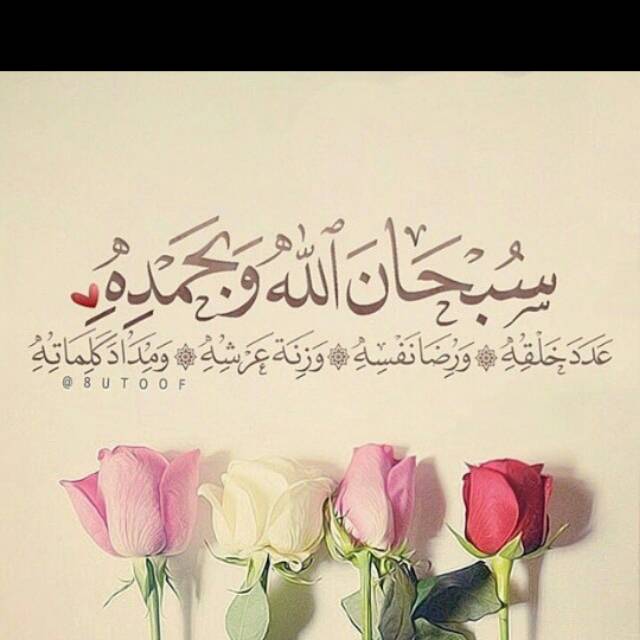 سُبْحَانَ ٱللّٰهِ وَبِحَمْدِهِ
عَدَدَ خَلْقِهِ ۞ وَرِضَا نَفْسِهِ ۞ وَزِنَة عَرْشِهِ ۞ وَمِدَادَ كَلِمَاتِهِ
@8UTOOF